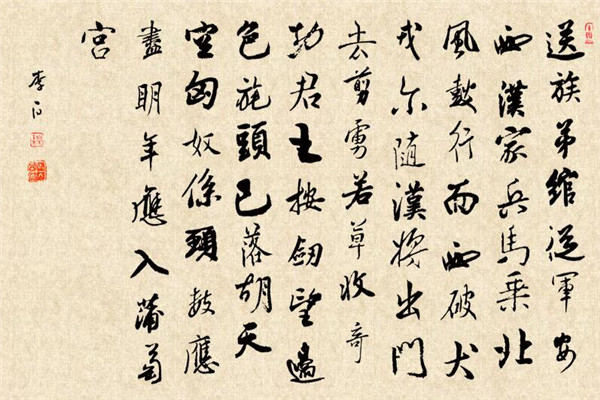 送族弟綰從軍安
西漢家兵馬乘北
風鼓行而西破犬
戎尔隨漢將出門
去剪虜若草收奇
功君王按劍望邊
色旄頭已落胡天
空匈奴係頸數應
盡明年應入蒲萄
宮
李白